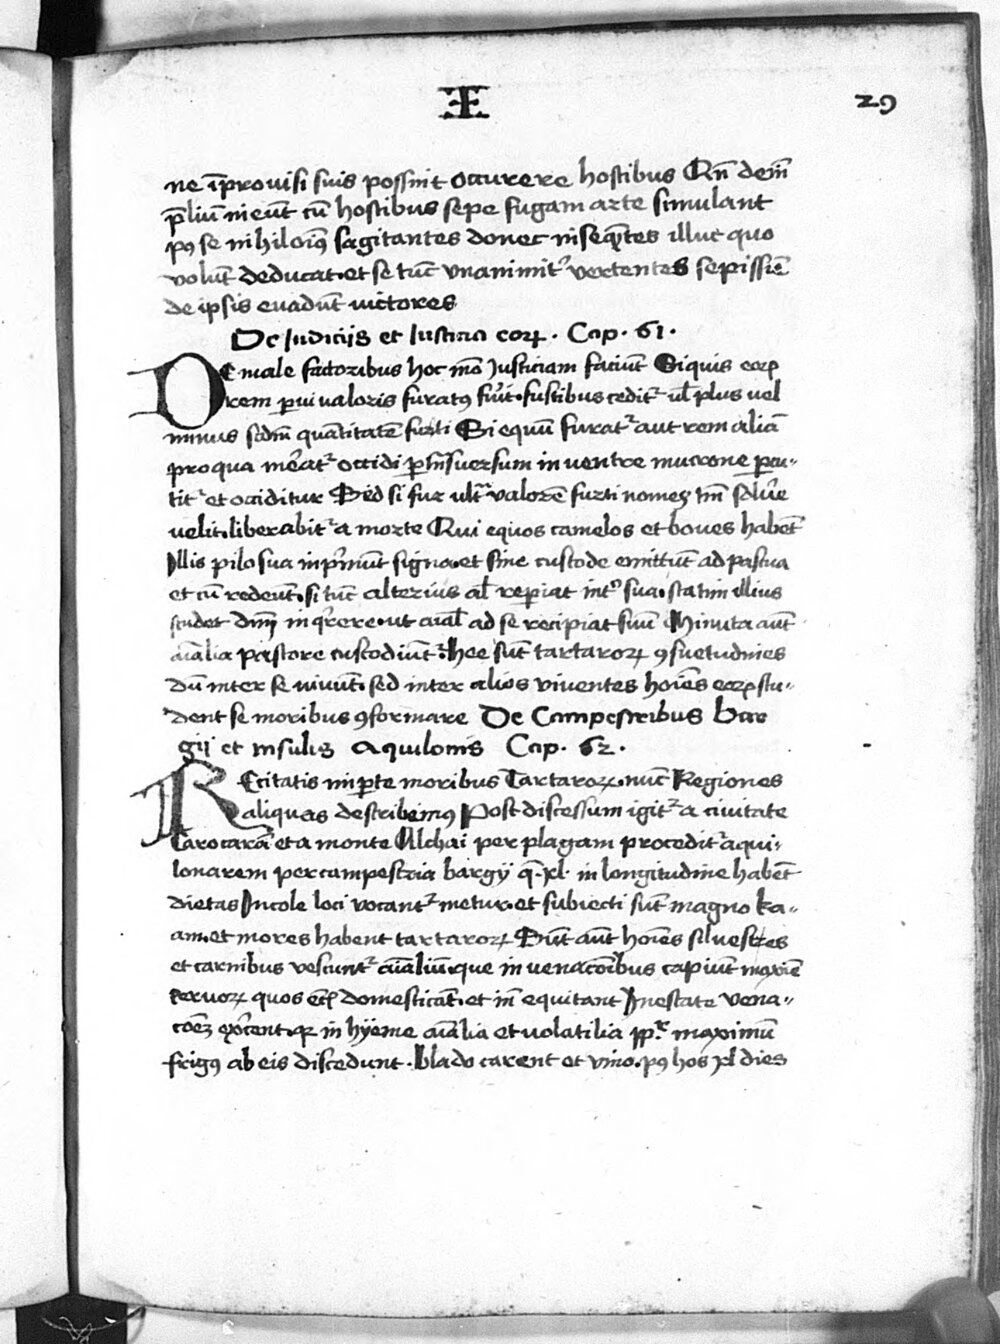 29
ne īprouisi suis possint occurere hostibus Qn̄ deīn
p̄liū ineūt cū hostibus sepe fugam arte simulant
se nihilomī sagitantes donec inseq̄ntes illuc quo
volūt deducāt et se tūc vnanimitʼ vertentes sepissīe
de ipsis euadūt victores
De Iudiciis et Iusticia eoꝝ. Cap. 61.
De male factoribus hoc mō Iusticiam faciūt Siquis eoꝝ
rem parui valoris furatꝰ fuīt fustibus ceditʼ ul̄ plus uel
minus scdm̄ quātitatē furti Si equū furatʼ aut rem aliā
pro qua mēatʼ occidi uersum in uentre mucrone ꝑcu-
titʼ et occiditur Sed si fur ultʼ valorē furti nomeꝫ tm̄ soluē
uelit liberabitʼ a morte Qui equos camelos et boues habēt
Illis pilo sua inpͥmūt signa et sine custode emittūt ad pascua
et cū redeūt si tūc alterius al̄ reperiāt intʼ sua statim illius
studet dn̄m inqͥrere ut aīal ad se recipiat suū Minuta aūt
aīalia pastore custodiūt Hee sūt tartaroꝝ ꝯsuetudines
dū inter se uiuūt sed inter alios viuentes hoīes eoꝝ stu-
dent se moribus ꝯformare De Campestribus Bar
gij et insulis Aquilonis Cap. 62.
Recitatis inp̄te moribus Tartaroꝝ nūc Regiones
aliquas describemꝰ Post discessum igitʼ a ciuitate
Carocarā et a monte Alchai per plagam proceditʼ aqui-
lonarem per campestria bargij q̄ xl in longitudine habēt
dietas Incole loci vocantʼ metur et subiecti sūt magno ka-
am et mores habent tartaroꝝ Sūt aūt hoīes siluestres
et carnibus vescuntʼ aīaliū que in uenacōibus capiūt maxīe
ceruoꝝ quos domesticāt et in equitant In estate vena-
cōeꝫ exͨent in hyeme aīalia et volatilia ꝓpʼ maximū
frigꝰ ab eis discedunt. Blado carent et vino hos xl dies